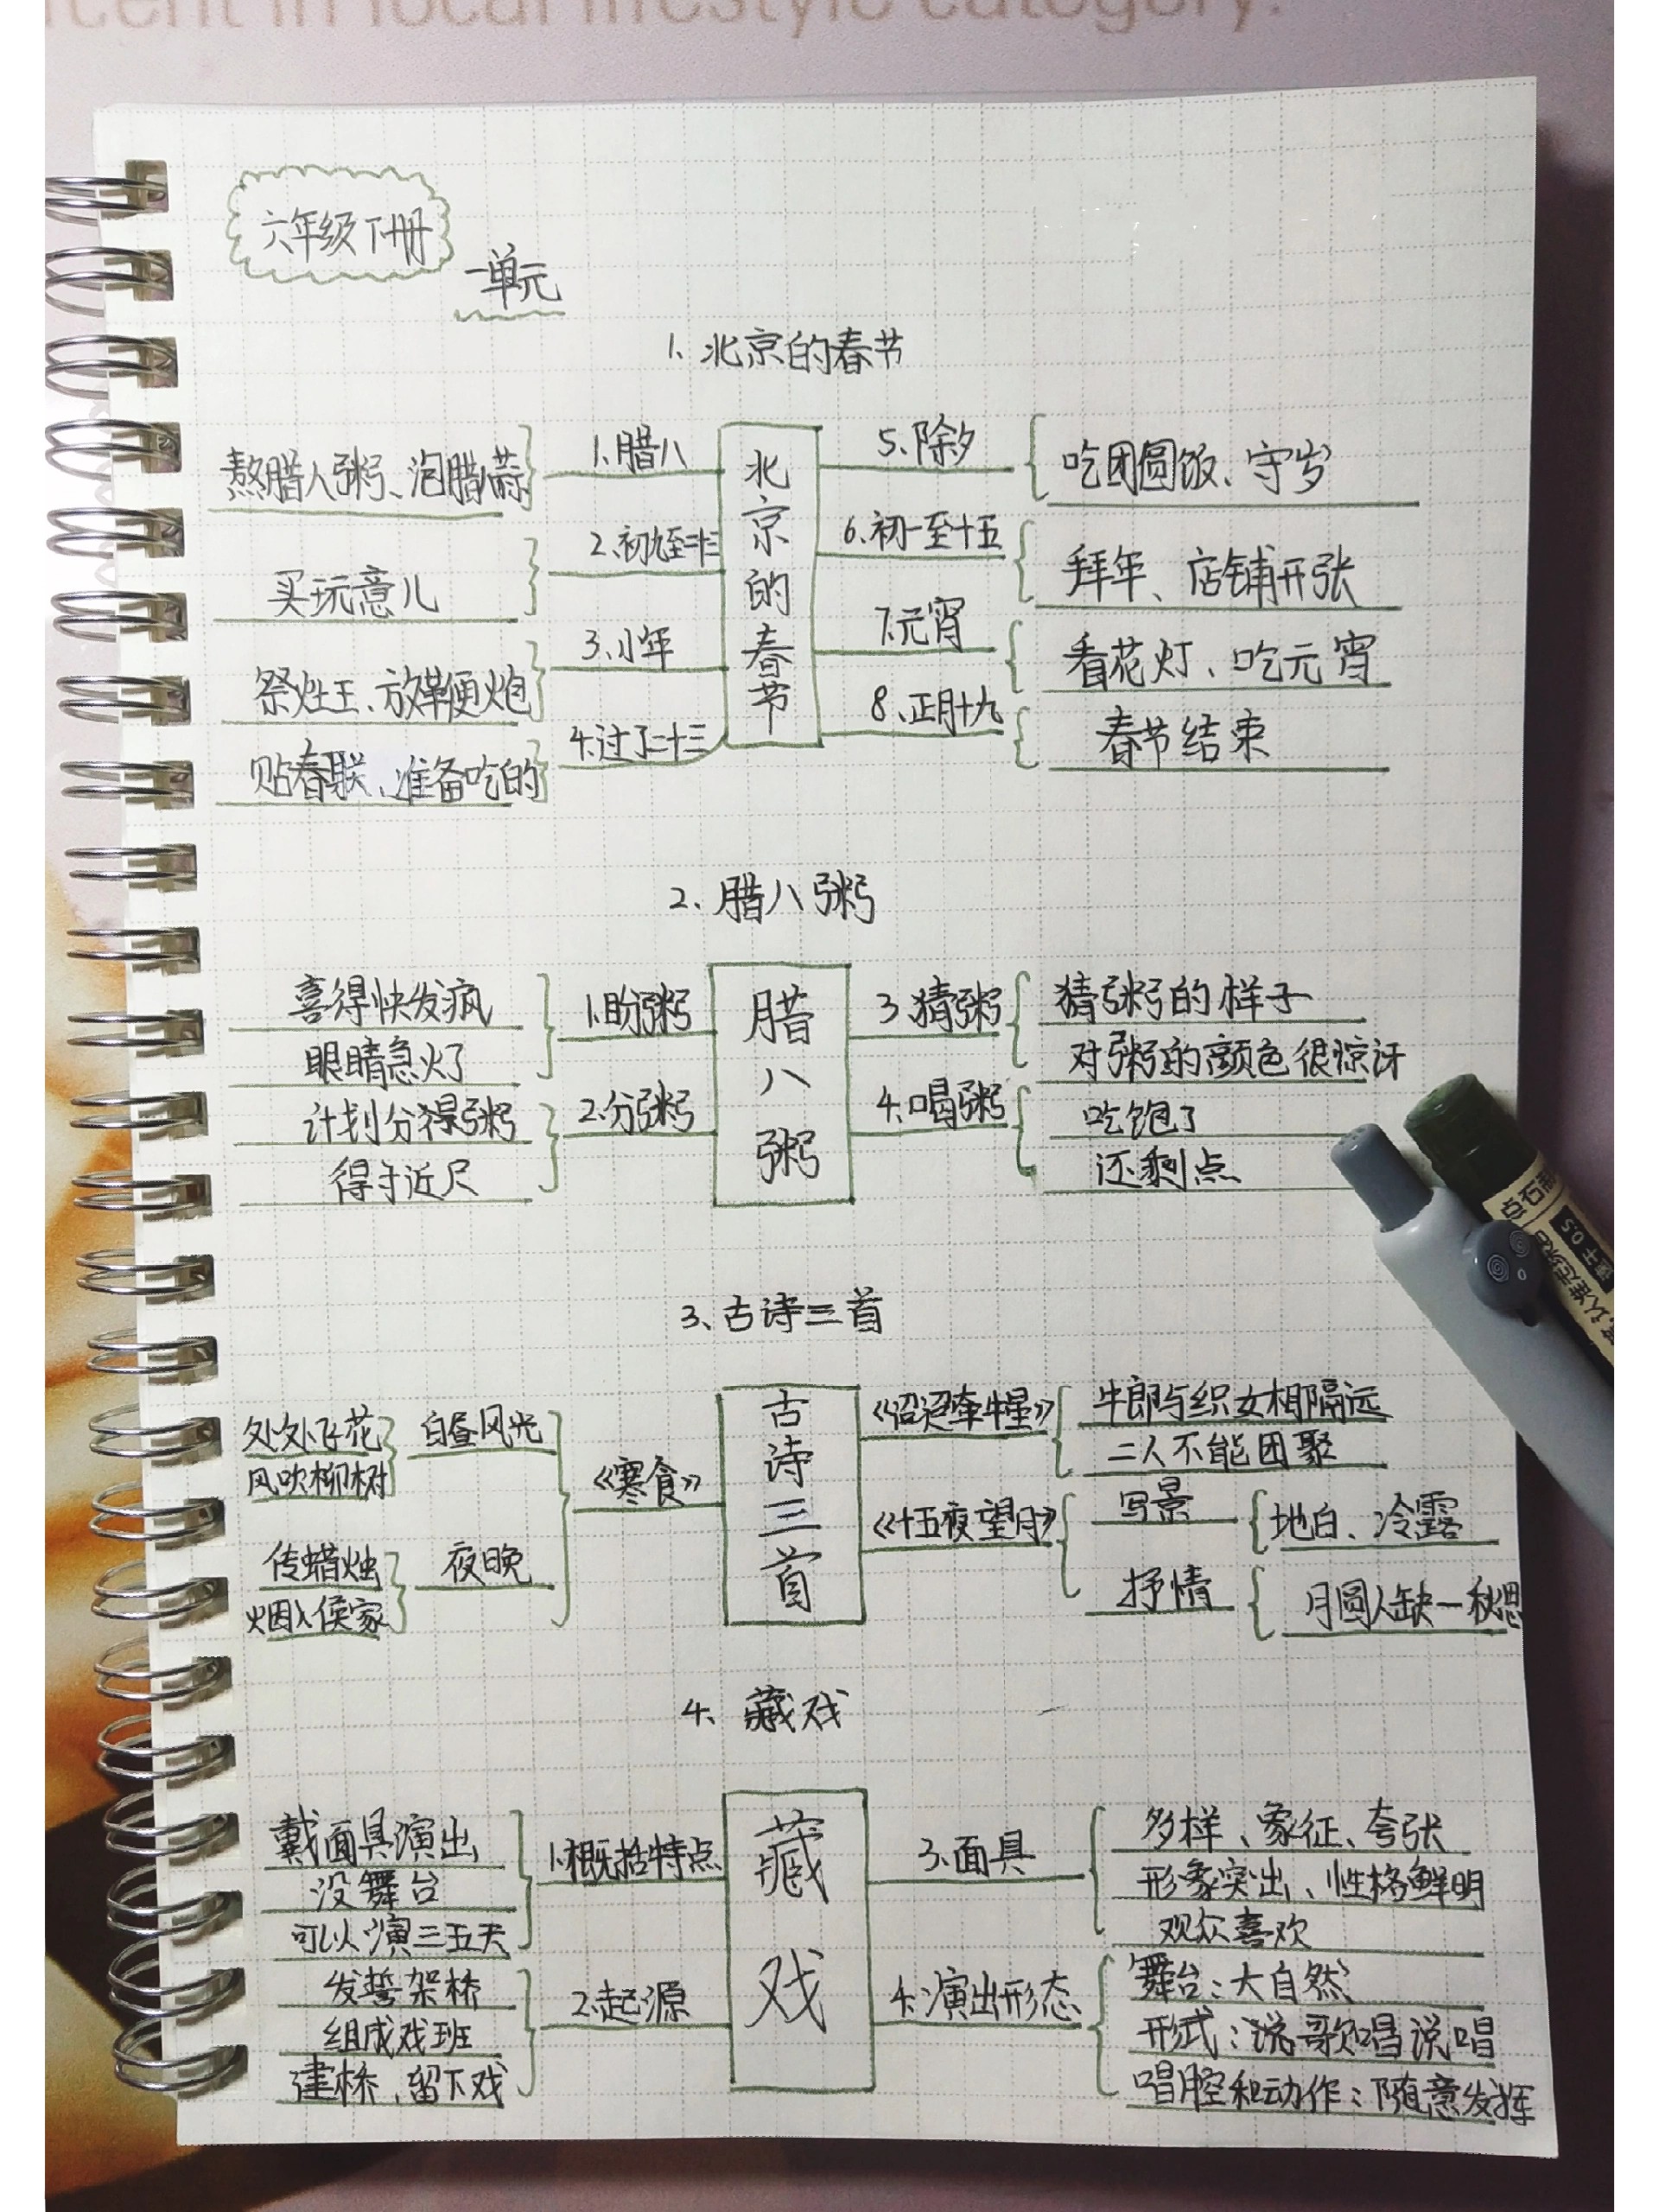 tent in local lifestyle category.
六年级下册
一单元
1、北京的春节
北京的春节
1、腊八
熬腊八粥、泡腊八蒜
2、初九至二十三
买玩意儿
3、小年
祭灶王、放鞭炮
4、过了二十三
贴春联、准备吃的
5、除夕
吃团圆饭、守岁
6、初一至十五
拜年、店铺开张
7、元宵
看花灯、吃元宵
8、正月十九
春节结束
2、腊八粥
腊八粥
1、盼粥
喜得快发疯
眼睛急火了
2、分粥
计划分得粥
得于近尺
3、猜粥
猜粥的样子
对粥的颜色很惊讶
4、喝粥
吃饱了
还剩点
3、古诗三首
古诗三首
《寒食》
白昼风光
处处飞花
风吹柳树
夜晚
传蜡烛
烟入侯家
《迢迢牵牛星》
牛郎与织女相隔远
二人不能团聚
《十五夜望月》
写景
地白、冷露
抒情
月圆人缺一秋思
4、藏戏
藏戏
1、概括特点
戴面具演出
没舞台
可以演三五天
2、起源
发誓架桥
组成戏班
建桥、留下戏
3、面具
多样、象征、夸张
形象突出、性格鲜明
观众喜欢
4、演出形态
舞台：大自然
形式：说歌唱说唱
唱腔和动作：随意发挥